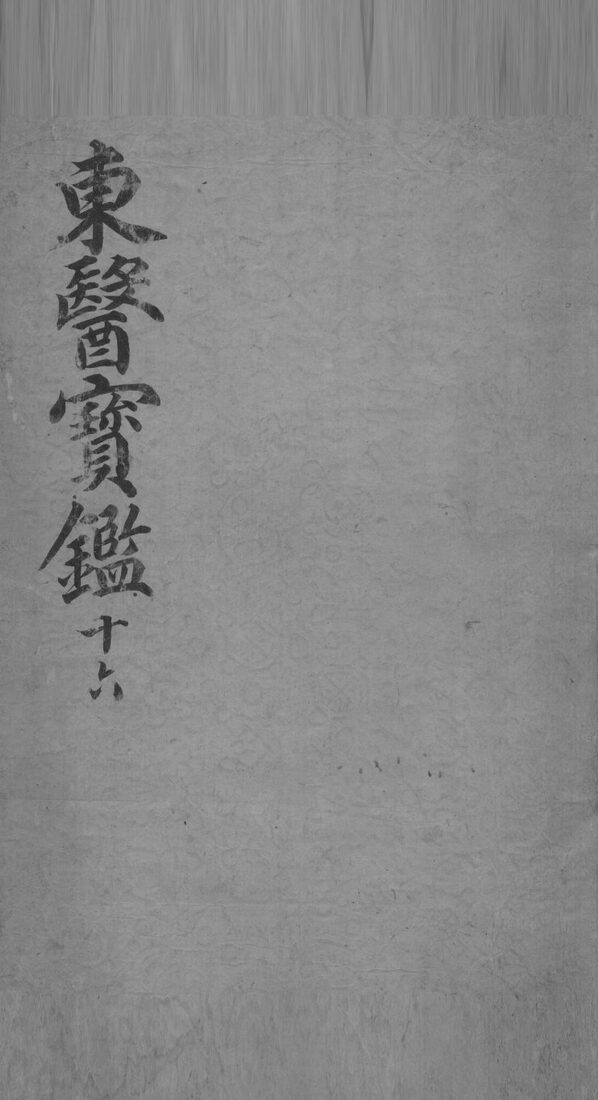 東醫寶鑑 十六